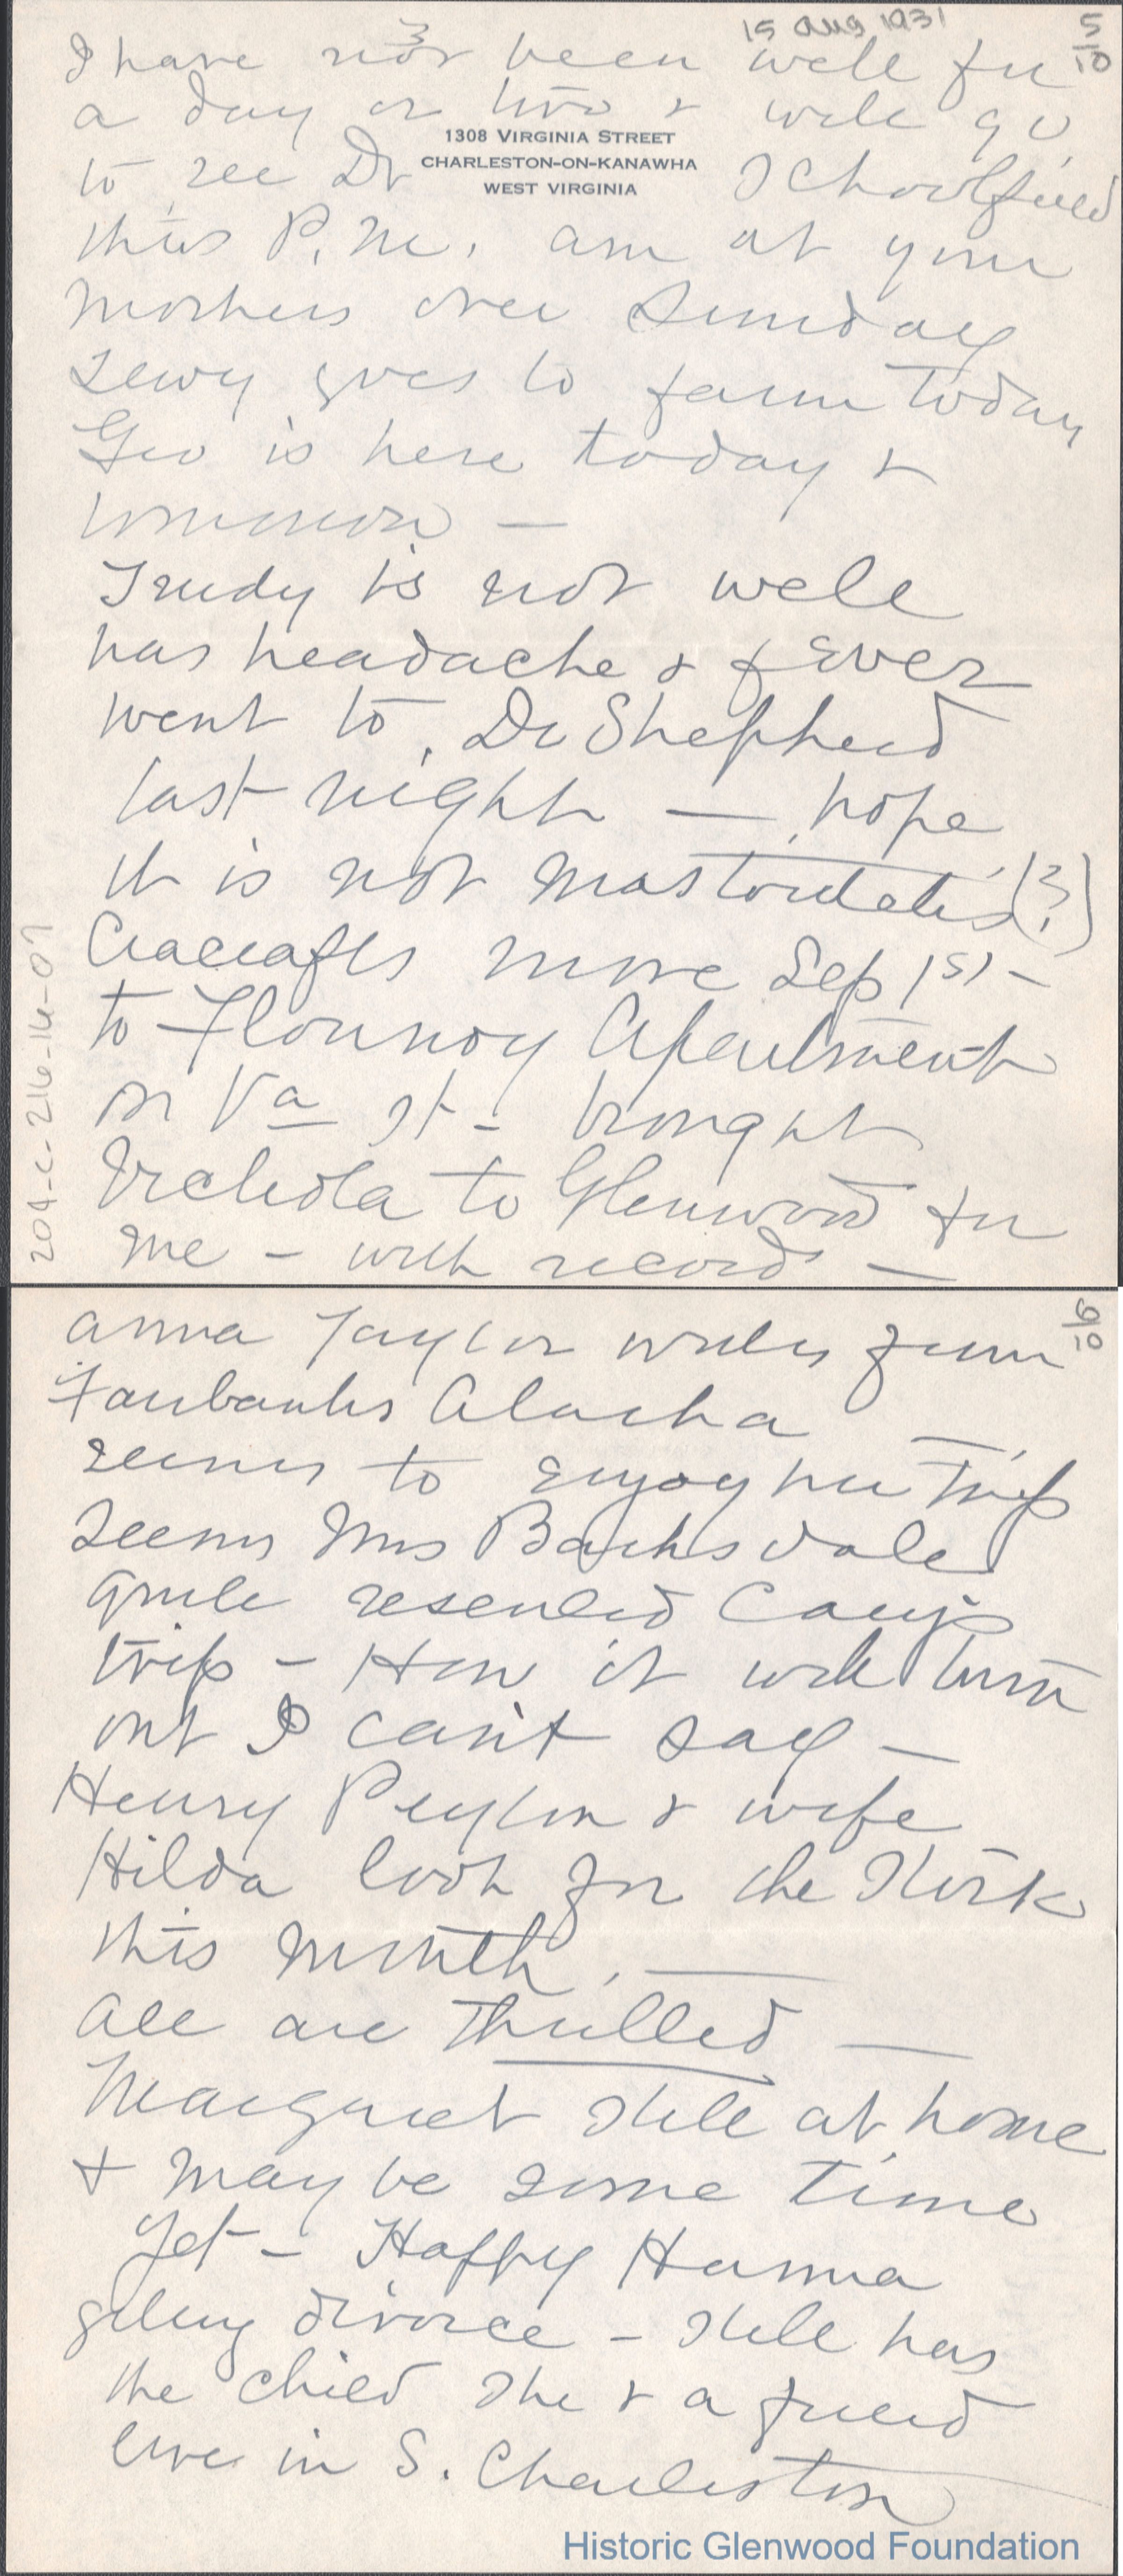 15 Aug 1931
5/10
3
I have not been well for
a day or two & will go
1308 VIRGINIA STREET
CHARLESTON-ON-KANAWHA
WEST VIRGINIA
to see Dr Schoolfield
this P.M. am at your
Mothers over Sunday
Lewy goes to farm today
Geo is here today &
tomorrow —
Trudy is not well
has headache & fever
went to Dr Shepherd
last night — hope
it is not mastoidetis (?)
Cracrafts move Sep 1st –
to Flournoy Apartment
on Va St – brought
Victrola to Glenwood for
me – with record —
204-C-216-16-07
6/10
Anna Taylor writes from
Fairbanks Alaska —
seems to enjoy her trip
Seems Mrs Barksdale
quite resented
trip – How it will turn
out I can't say —
Henry Peyton & wife
Hilda look for the Stork
this month. —
All are thrilled —
Margaret still at home
& may be some time
yet – Happy Hanna
geting divorce – still has
the child She & a friend
live in S. Charleston
Historic Glenwood Foundation